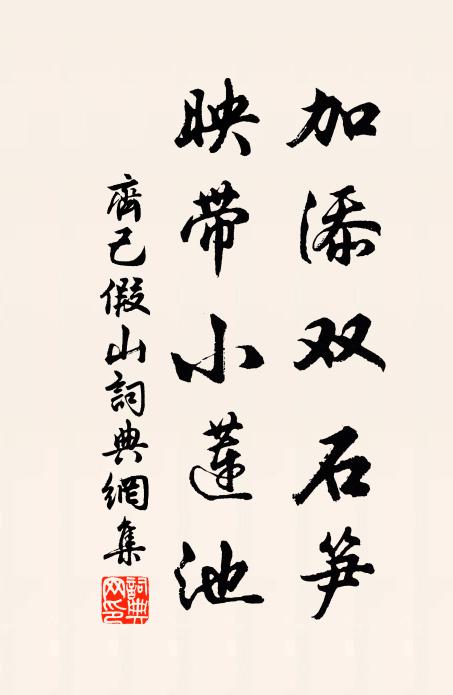 加添双石笋
映带小蓮池
齊己假山詞典網集
詞典網印